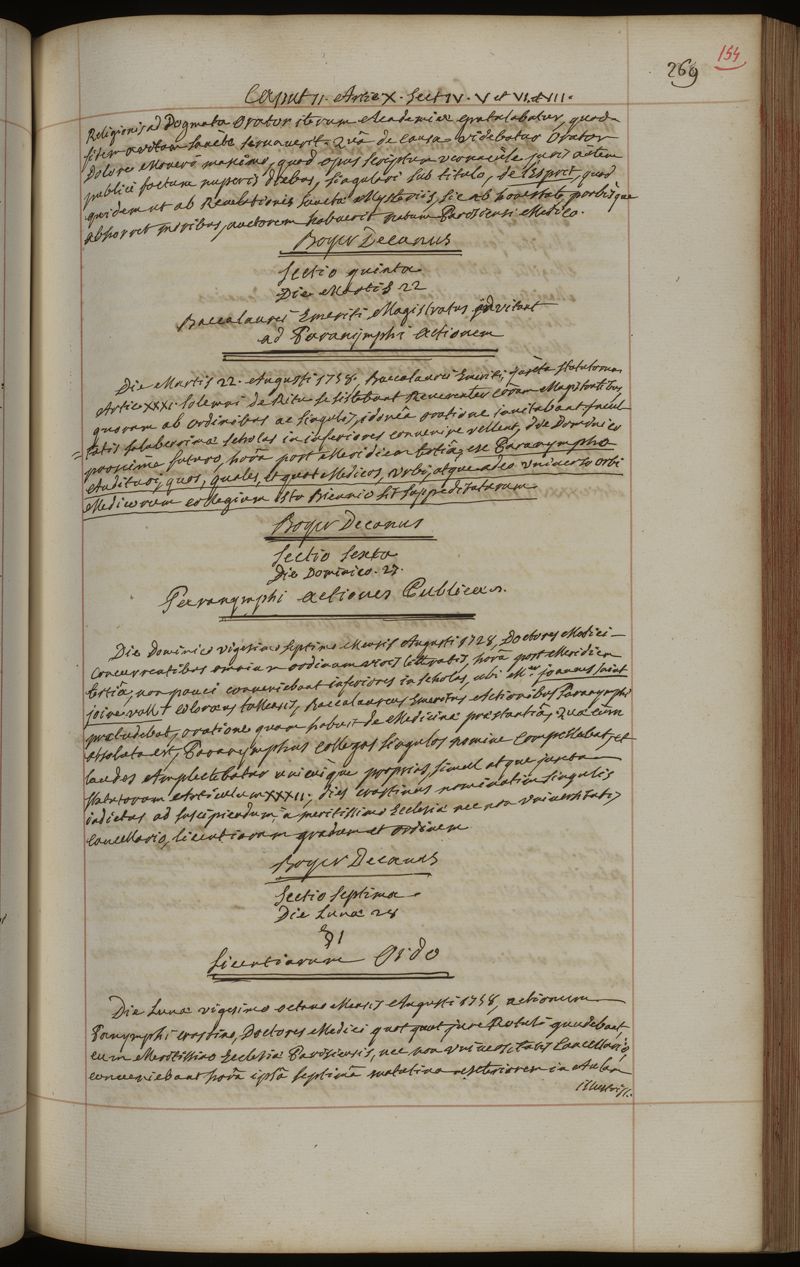 154
269
Caput II. Artic X. Sect IV. V et VI. et VII.
Religionis ad Dogmata Orator iterum Academiæ gratulabatur, quod
fidem avitam sanctè servaverit. Quâ de causa videbatur Orator
dolore moveri maximo, quod opus scriptum vernacule juris autem
publici factum nuperis diebus, singulari sub titulo, de l'Esprit, quod
quidem ut ab Revelationis sanctæ Mysteriis, sic ab honestate probisque
abhorret moribus, auctorem habuerit natum Parisiensi Medico.
Boyer Decanus
Sectio quinta
Die Martis 22
Baccalaurei Emeriti Magistratus invitant
ad Paranymphi Actionem
Die Martis 22. Augusti 1758. Baccalaurei Emeriti, juxta statutorum
Artic XXXI. solemni de Ritu se sistebant Reverenter coram Magistratibus
quorum ab ordinibus ac singulis, idoneâ oratione invitabant, facul
tatis saluberrimæ scholas in inferiores convenire vellent, die Dominico
proximè futuro, horâ post Meridiem tertiâ, ex Paranympho
Audituri, quos, quales, et quot Medicos, Urbi, atque adeo universo orbi
Medicorum collegium isto Biennio sit suppeditaturum.
Boyer Decanus
Sectio sexta
Die Dominico. 27.
Paranymphi Actiones Publicæ.
Die Dominico vigesimo septimo Mensis Augusti 1758, Doctores Medici
concurrentibus omnium ordinum viris litteratis, horâ post Meridiem
tertiâ, non pauci conveniebant inferiores in scholas, ubi Mer joannes
Baccalaureus Emeritus Actionibus Paranymphi
præludebat, oratione quam habuit de Medicinæ præstantiâ, Quâ cùm
absoluta est, Paranymphus collegas singulos nomine compellabat, et
laudes Amplectebatur unicuique proprias, simul atque juxta
statutorum Articulum XXXII. dies crastinus nominatim singulis
indictus ad suscipiendum, a meritissimo Ecclesiæ nec non universitatis
Cancellario, licentiarum gradum et ordinem
Boyer Decanus
Sectio septima
Die Lunæ 28
§ I
Licentiarum Ordo
Die Lunæ vigesimo octavo Mensis Augusti 1758, actionum
Paranymphi crastino, Doctores Medici quot quot jure Rotuli gaudebant
cum Meritissimo Ecclesiæ Parisiensis, nec non universitatis Cancellario,
conveniebant horâ ipsâ septimâ matutina in Aulam
illustriss.